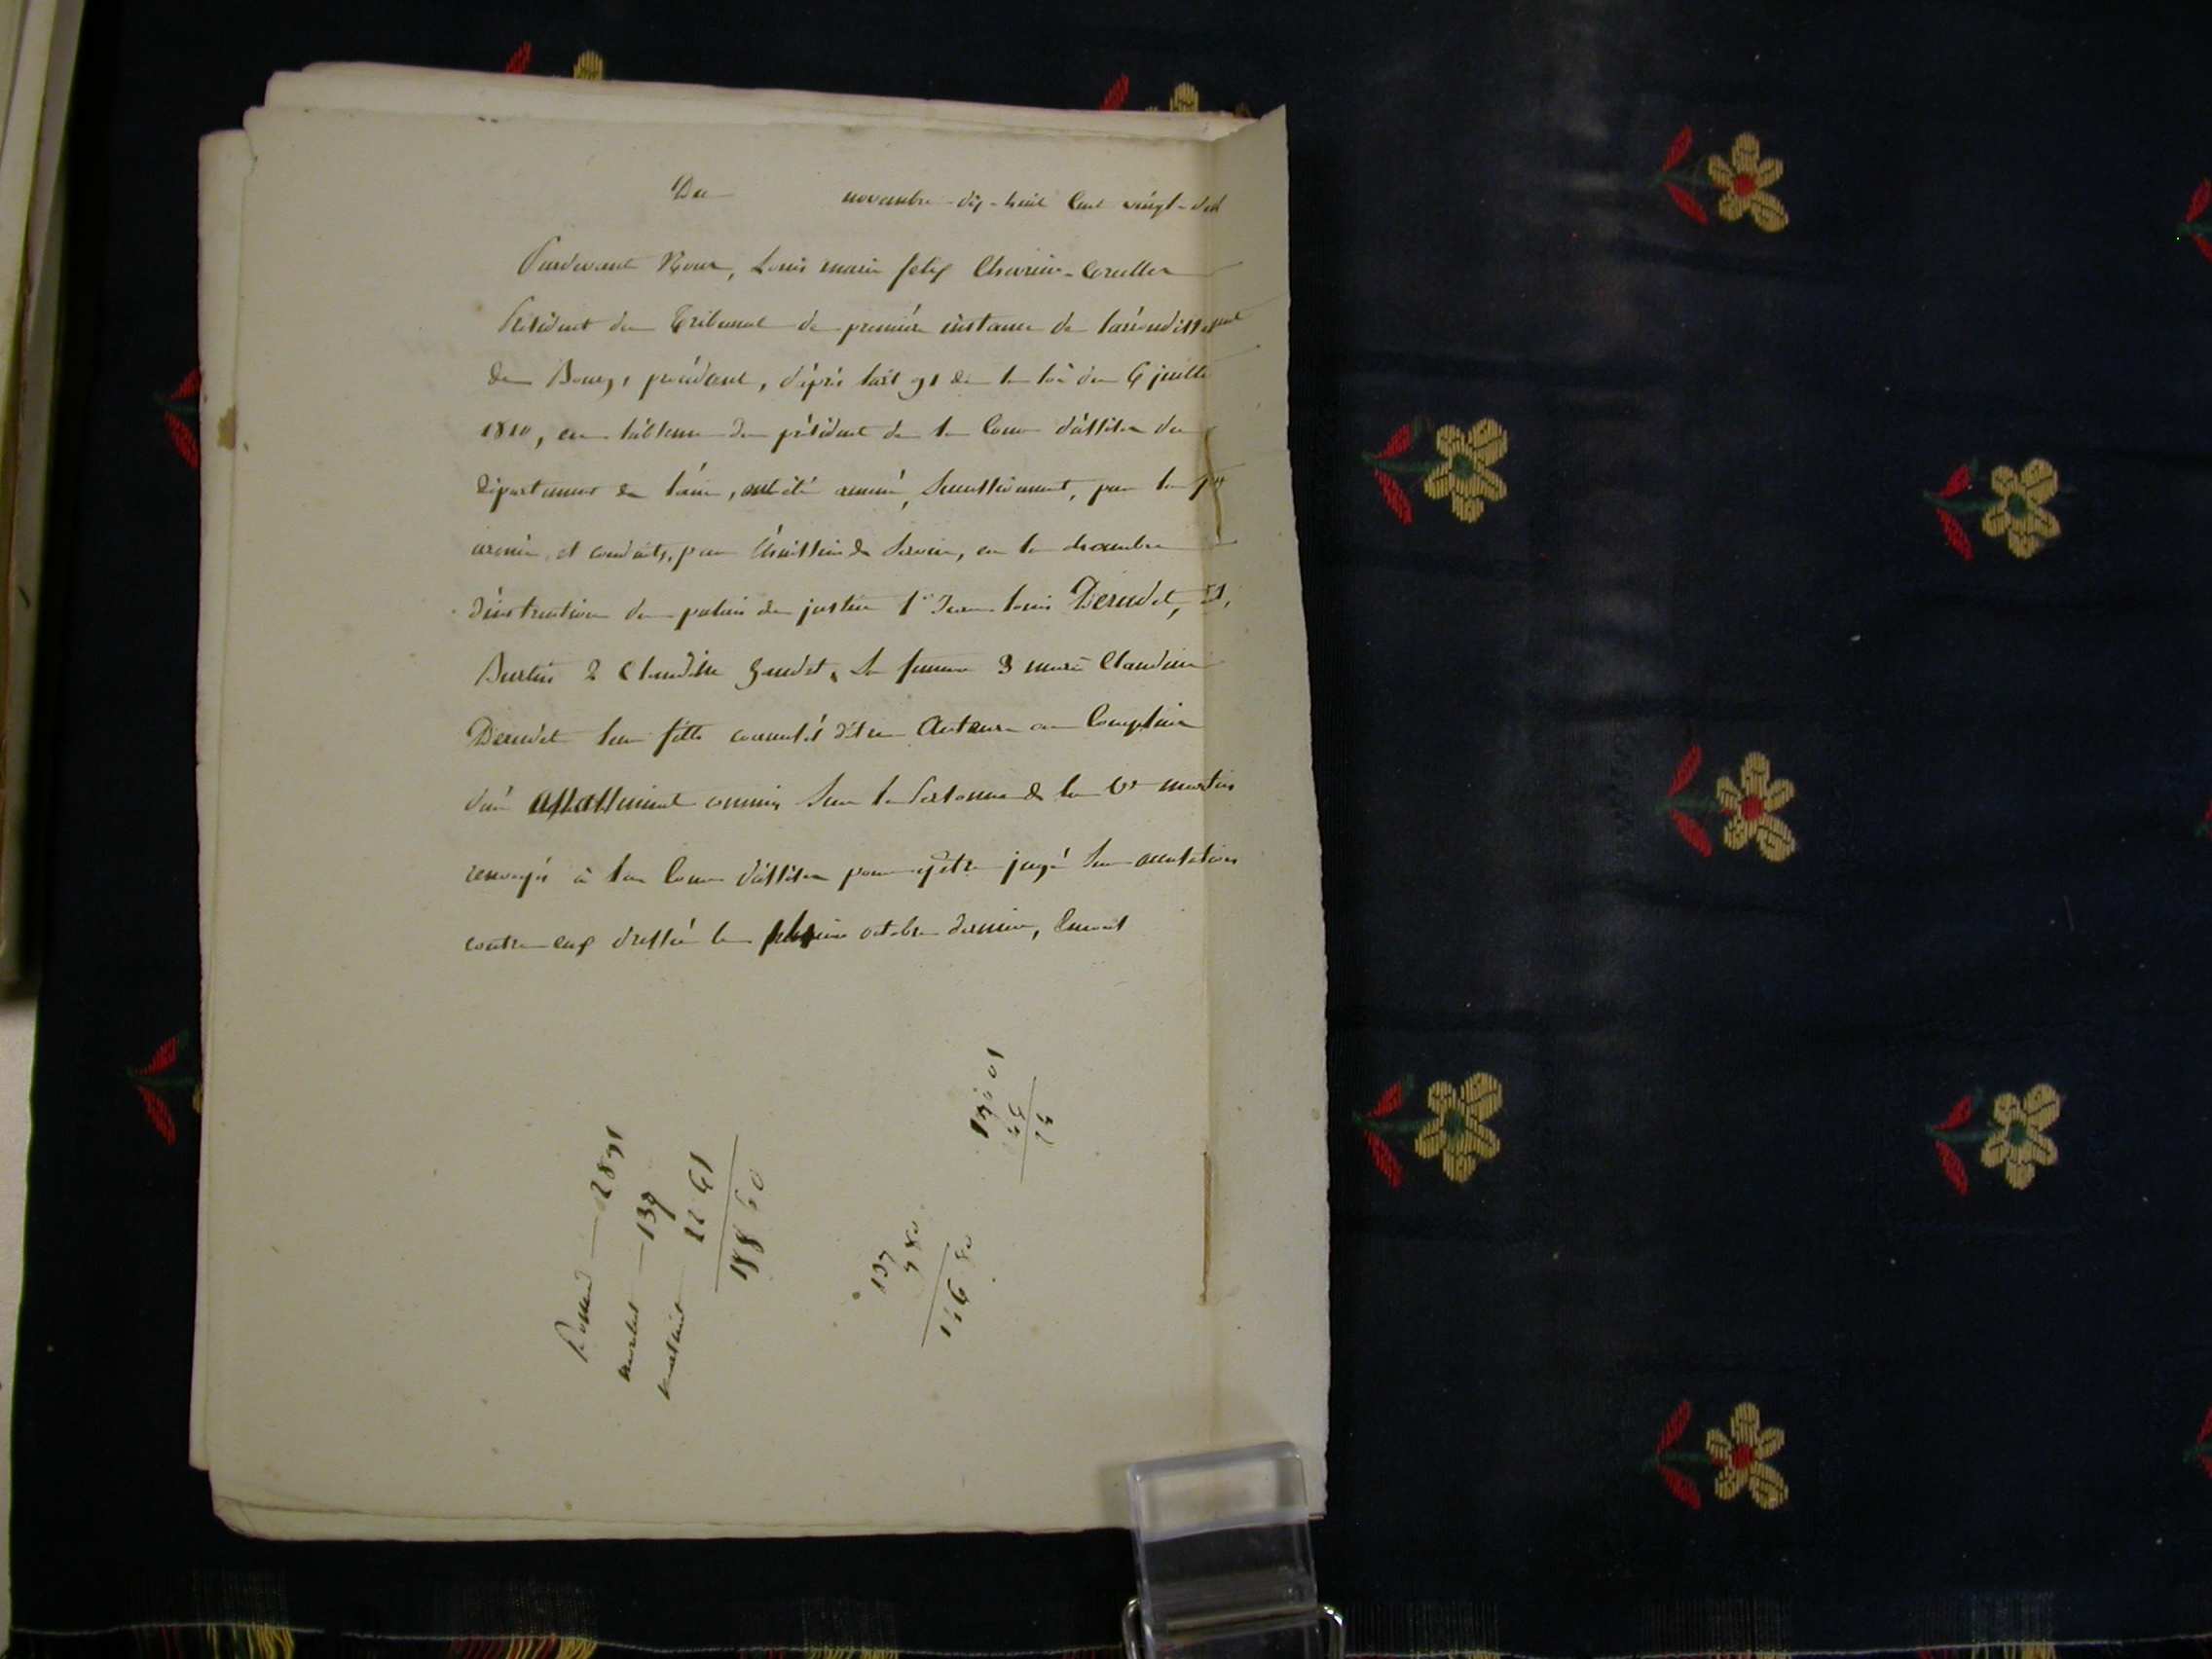 Du novembre dix-huit cent vingt-
Pardevant Nous, Louis marie felix Chevrier-Corcelles
Président du Tribunal de première instance de l'arrondissement
de Bourg, procédant, d'après l'art 91 de la loi du 6 juillet
1810, en l'absence du président de la Cour d'assises du
département de l'ain, ont été amenés, successivement, par la
armée et conduits, par l'huissier de Service, en la chambre
d'instruction du palais de justice 1° Jean Louis Derudet, dt,
Burtin 2 Claudine Gaudet, Sa femme 3 marie Claudine
Derudet leur fille accusés d'être Auteurs ou Complices
d'un assassinat commis Sur la Personne de la Ve martin
renvoyés à la Cour d'assises pour y être jugés Sur accusation
contre eux dressée le octobre dernier,
28 91
137
22 61
188 50
137
9 80
146 80